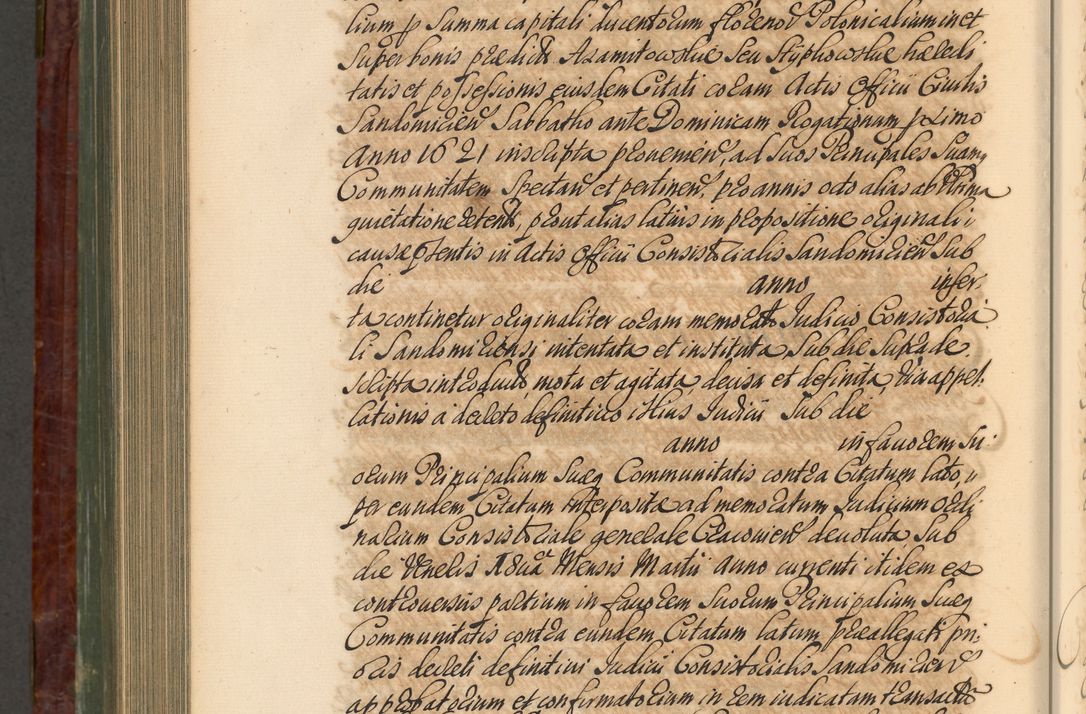 lium p Summa capitali ducentorum florenor Polonicalium in et
Super bonis prædictis Azamitowskie Seu Hyphowskie hæredi
tatis et possessionis eiusdem Citati coram Actis Officii Civilis
Sandomirien Sabbatho ante Dominicam Rogationum primo
Anno 1621 inscripta provenien, ad Suos Principales Suamq
Communitatem Spectan et pertinen, pro annis octo alias ab ultima
quietatione retent, prout alias latius in propositione originali i
causæ pntentis in Actis Officii Consistorialis Sandomirien Sub
die anno inser
ta continetur originaliter coram memorato Judicio Consistoria
li Sandomiriensi intentata et instituta Sub die Suprade
scripta introducta, mota et agitata, decisa et definita, via appel
lationis a decreto definitivo illius Judicii Sub die
anno in favorem Su
orum Principalium Suæq Communitatis contra Citatum lato,
per eundem Citatum interposita ad memoratum Judicium ordi
narium Consistoriale generale Cracovien devoluta Sub
die Veneris Mensis Martii Anno currenti itidem ex
controversiis partium in favorem Suorum Principalium Suæq
Communitatis contra eundem Citatum latum præallegati pri
oris decreti definitivi Judicii Consistorialis Sandomirien
approbatorium et confirmatorium in rem iudicatam transacta